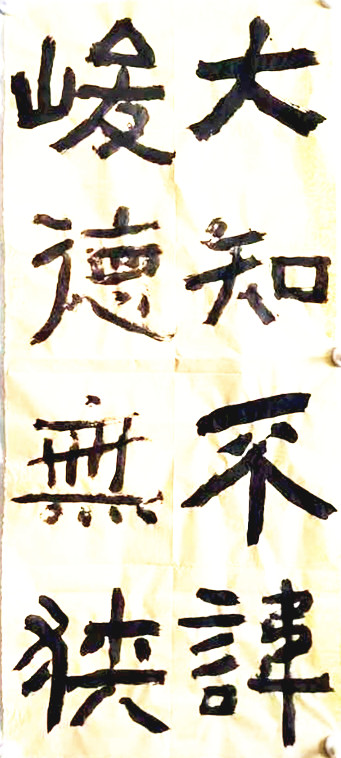 大知不諱
峻德無狭